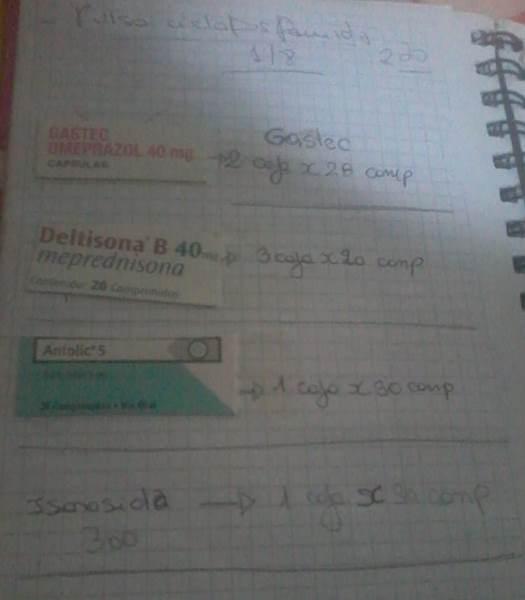 - Pulso ciclofosfamida
1/8 200
GASTEC
OMEPRAZOL 40 mg
CAPSULAS
Gastec
→ 2 caja x 28 comp
Deltisona B 40 mg
meprednisona
Contenido: 20 Comprimidos
→ 3 caja x 20 comp
Antolic 5
Comprimidos • Vía Oral
→ 1 caja x 30 comp
Isoniasida → 1 caja x 30 comp
300